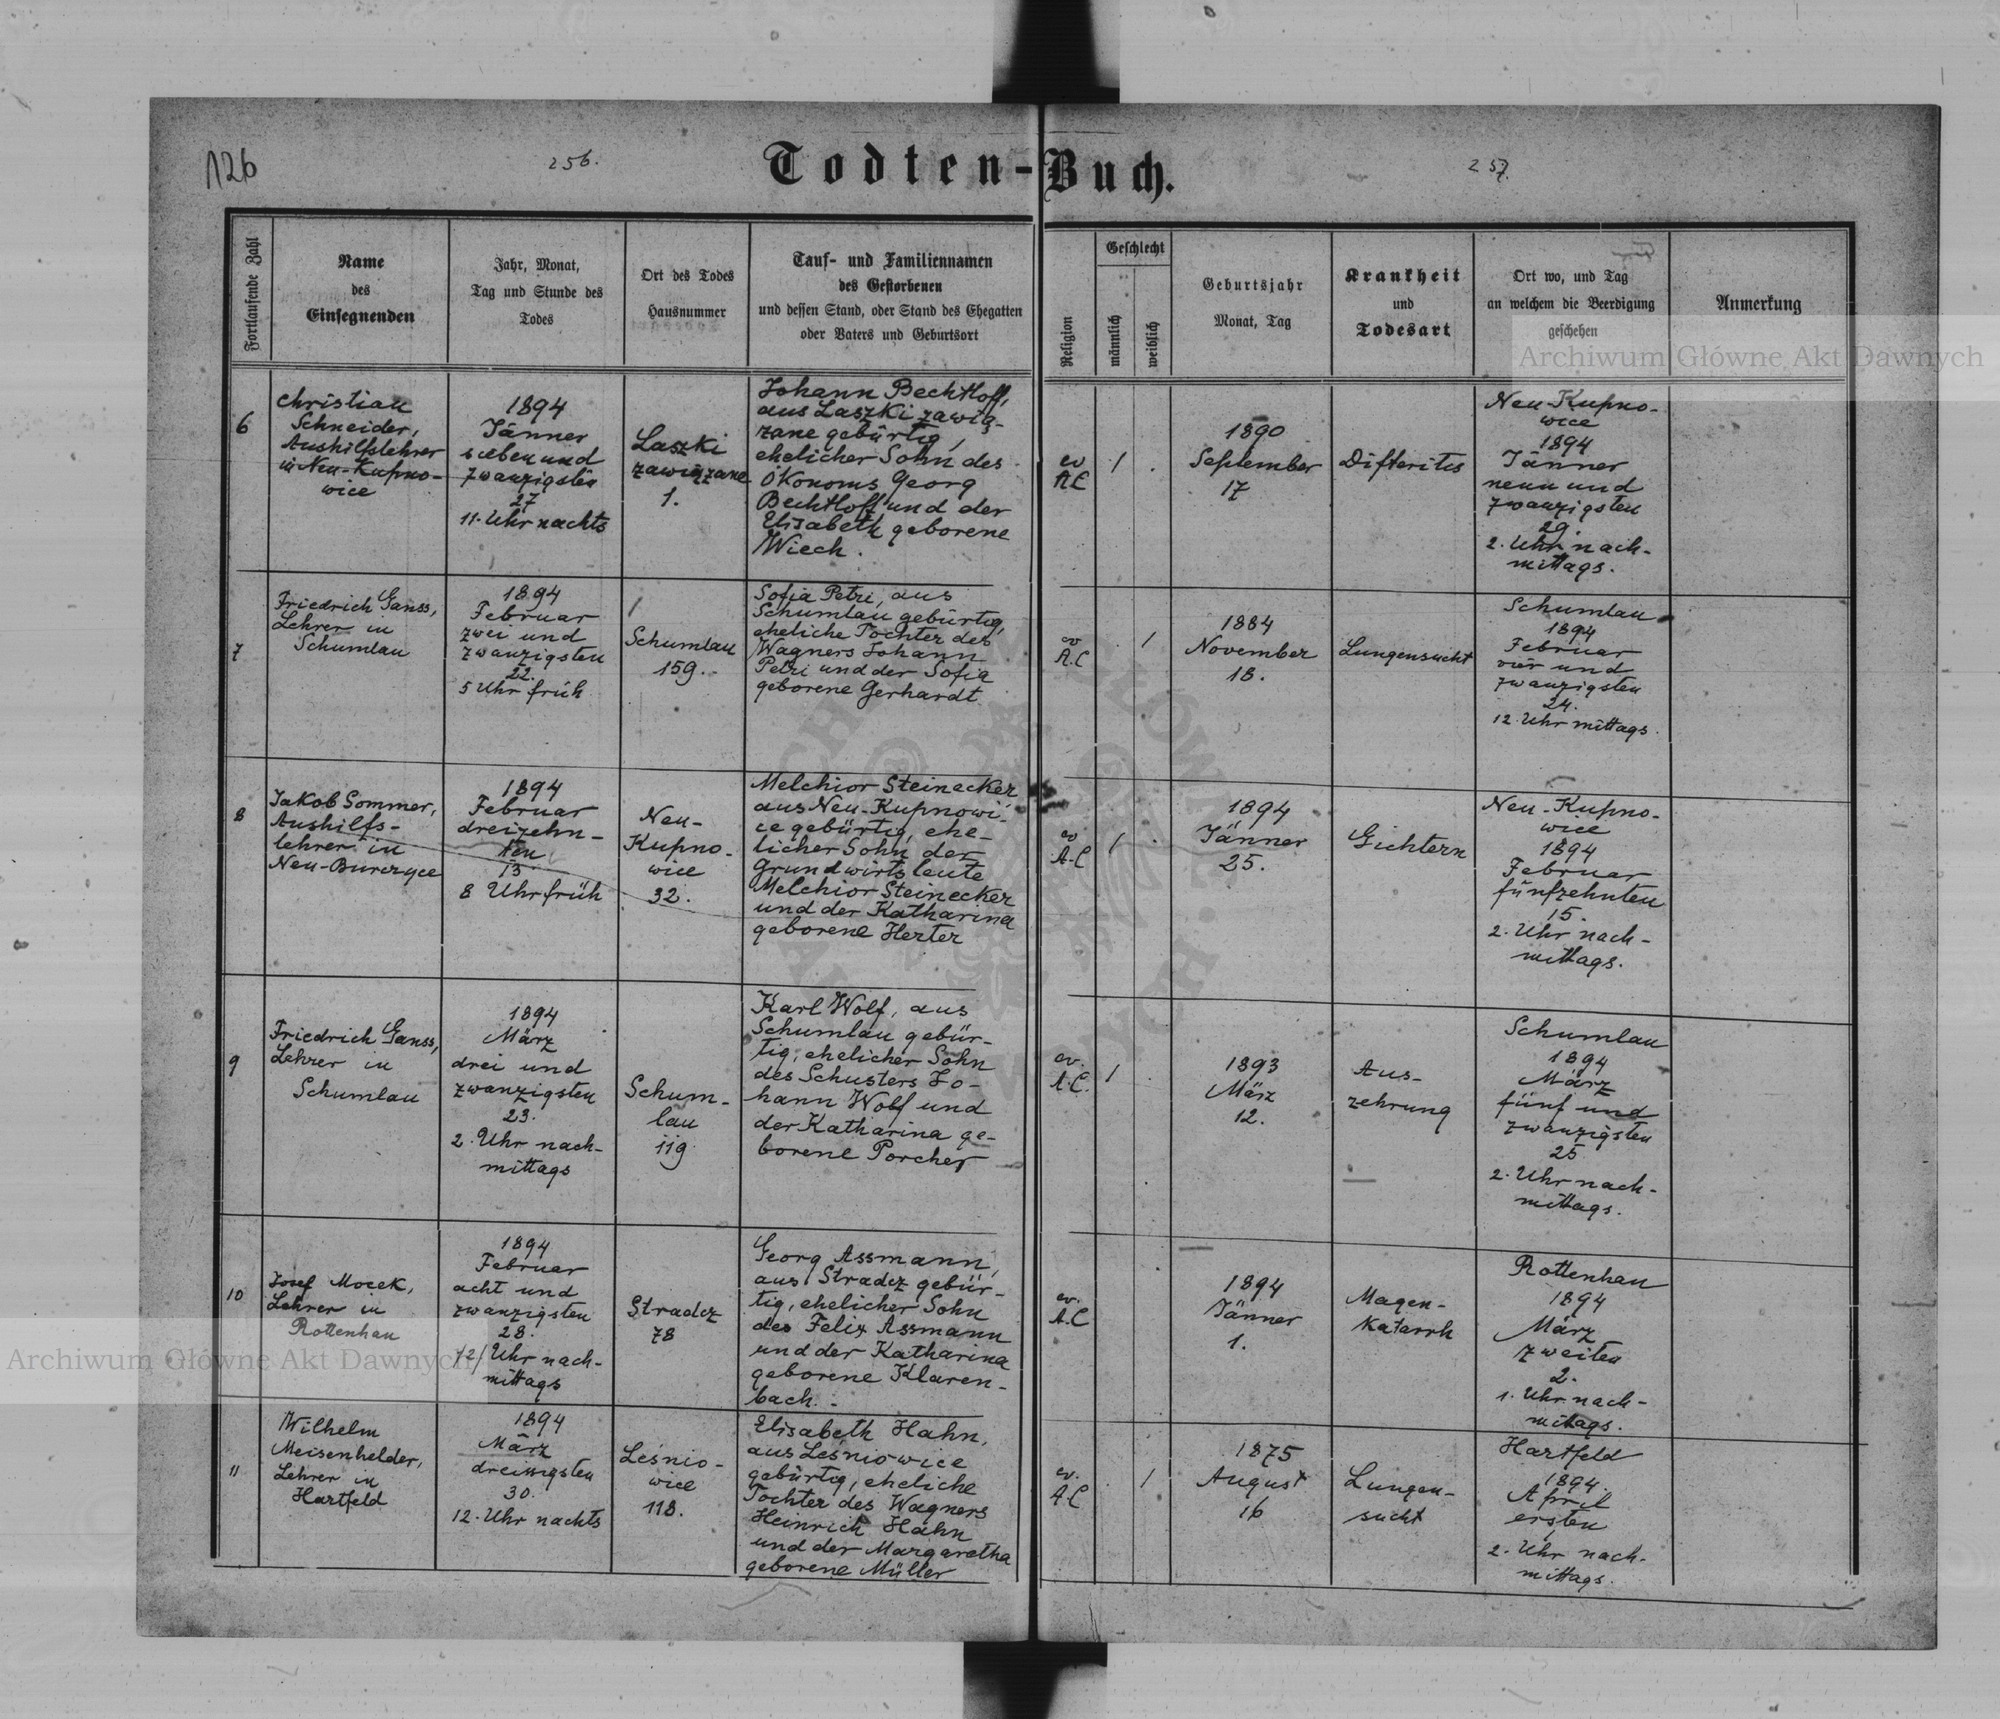 126
256.
Todten-Buch.
257.
Fortlaufende Zahl
Name
des
Einsegnenden
Jahr, Monat,
Tag und Stunde des
Todes
Ort des Todes
Hausnummer
Tauf- und Familiennamen
des Gestorbenen
und dessen Stand, oder Stand des Ehegatten
oder Vaters und Geburtsort
Religion
Geschlecht
männlich
weiblich
Geburtsjahr
Monat, Tag
Krankheit
und
Todesart
Ort wo, und Tag
an welchem die Beerdigung
geschehen
Anmerkung
6
Christian
Schneider,
Aushilfslehrer
in Neu-Kupno-
wice
1894
Jänner
sieben und
zwanzigsten
27
11. Uhr nachts
Laszki
zawiązane
1.
Johann Bechtloff,
aus Laszki zawią-
zane gebürtig,
ehelicher Sohn des
Ökonoms Georg
Bechtloff und der
Elisabeth geborene
Wiech.
ev
A.C
1
.
1890
September
17
Difteritis
Neu-Kupno-
wice
1894
Jänner
neun und
zwanzigsten
29.
2. Uhr nach-
mittags.
7
Friedrich Ganss,
Lehrer in
Schumlau
1894
Februar
zwei und
zwanzigsten
22.
5 Uhr früh
Schumlau
159.
Sofia Petri, aus
Schumlau gebürtig,
eheliche Tochter des
Wagners Johann
Petri und der Sofia
geborene Gerhardt
ev
A.C
.
1
1884
November
18.
Lungensucht
Schumlau
1894
Februar
vier und
zwanzigsten
24.
12. Uhr mittags.
8
Jakob Sommer,
Aushilfs-
lehrer in
Neu-Burczyce
1894
Februar
dreizehn-
ten
13
8 Uhr früh
Neu-
Kupno-
wice
32.
Melchior Steinecker
aus Neu-Kupnowi-
ce gebürtig, ehe-
licher Sohn der
Grundwirtsleute
Melchior Steinecker
und der Katharina
geborene Herter
ev
A.C
1
.
1894
Jänner
25.
Gichtern
Neu-Kupno-
wice
1894
Februar
fünfzehnten
15.
2. Uhr nach-
mittags.
9
Friedrich Ganss,
Lehrer in
Schumlau
1894
März
drei und
zwanzigsten
23.
2. Uhr nach-
mittags
Schum-
lau
119
Karl Wolf, aus
Schumlau gebür-
tig, ehelicher Sohn
des Schusters Jo-
hann Wolf und
der Katharina ge-
borene Porcher
ev.
A.C.
1
.
1893
März
12.
Aus-
zehrung
Schumlau
1894
März
fünf und
zwanzigsten
25
2. Uhr nach-
mittags.
10
Josef Mocek,
Lehrer in
Rottenhan
1894
Februar
acht und
zwanzigsten
28.
12/ Uhr nach-
mittags
Stradcz
78
Georg Assmann,
aus Stradcz gebür-
tig, ehelicher Sohn
des Felix Assmann
und der Katharina
geborene Klaren-
bach.
ev.
A.C
1894
Jänner
1.
Magen-
Katarrh
Rottenhan
1894
März
zweiten
2.
1. Uhr nach-
mittags.
11
Wilhelm
Meisenhelder,
Lehrer in
Hartfeld
1894
März
dreissigsten
30.
12. Uhr nachts
Leśnio-
wice
118.
Elisabeth Hahn,
aus Leśniowice
gebürtig, eheliche
Tochter des Wagners
Heinrich Hahn
und der Margaretha
geborene Müller
ev.
A.C
.
1
1875
August
16
Lungen-
sucht
Hartfeld
1894.
April
ersten
1
2. Uhr nach-
mittags.
Archiwum Główne Akt Dawnych
Archiwum Główne Akt Dawnych